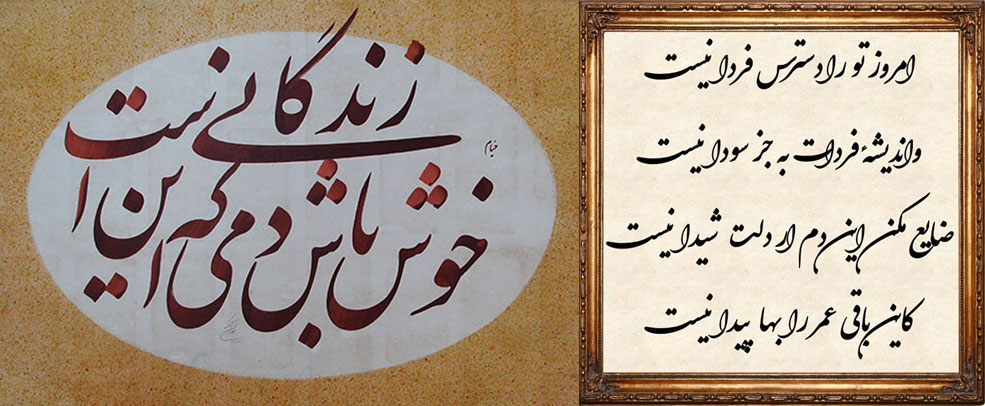 خوش باش دمی که زندگانی این است
خیام
امروز تو را دسترس فردا نیست
واندیشهٔ فردات به جز سودا نیست
ضایع مکن این دم ار دلت شیدا نیست
کاین باقی عمر را بها پیدا نیست